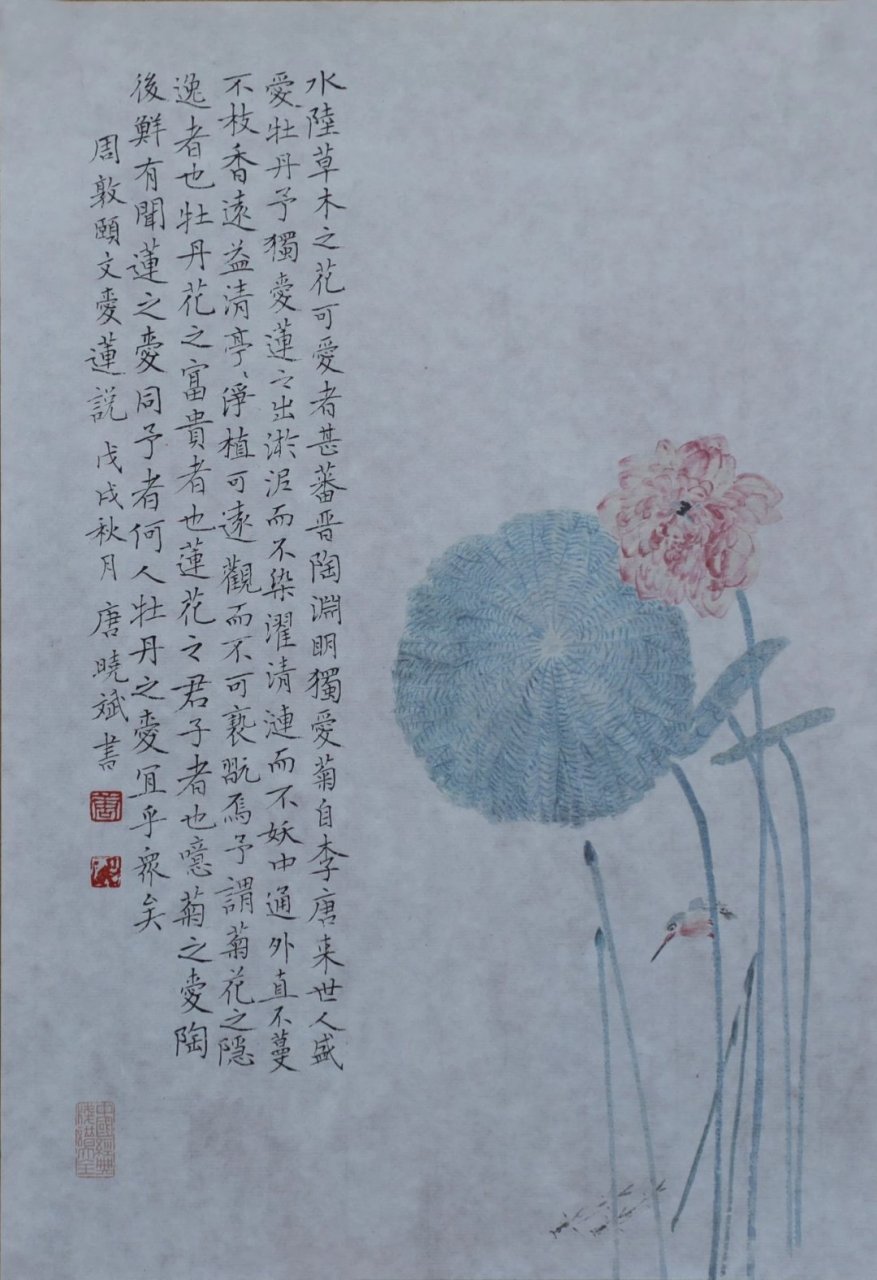 水陸草木之花可愛者甚蕃晋陶淵明獨愛菊自李唐来世人盛
愛牡丹予獨愛蓮之出淤泥而不染濯清漣而不妖中通外直不蔓
不枝香遠益清亭〻淨植可遠觀而不可褻翫焉予謂菊花之隱
逸者也牡丹花之富貴者也蓮花之君子者也噫菊之愛陶
後鮮有聞蓮之愛同予者何人牡丹之愛宜乎衆矣
周敦頤文愛蓮説 戊戌秋月 唐曉斌書
唐
中國經典